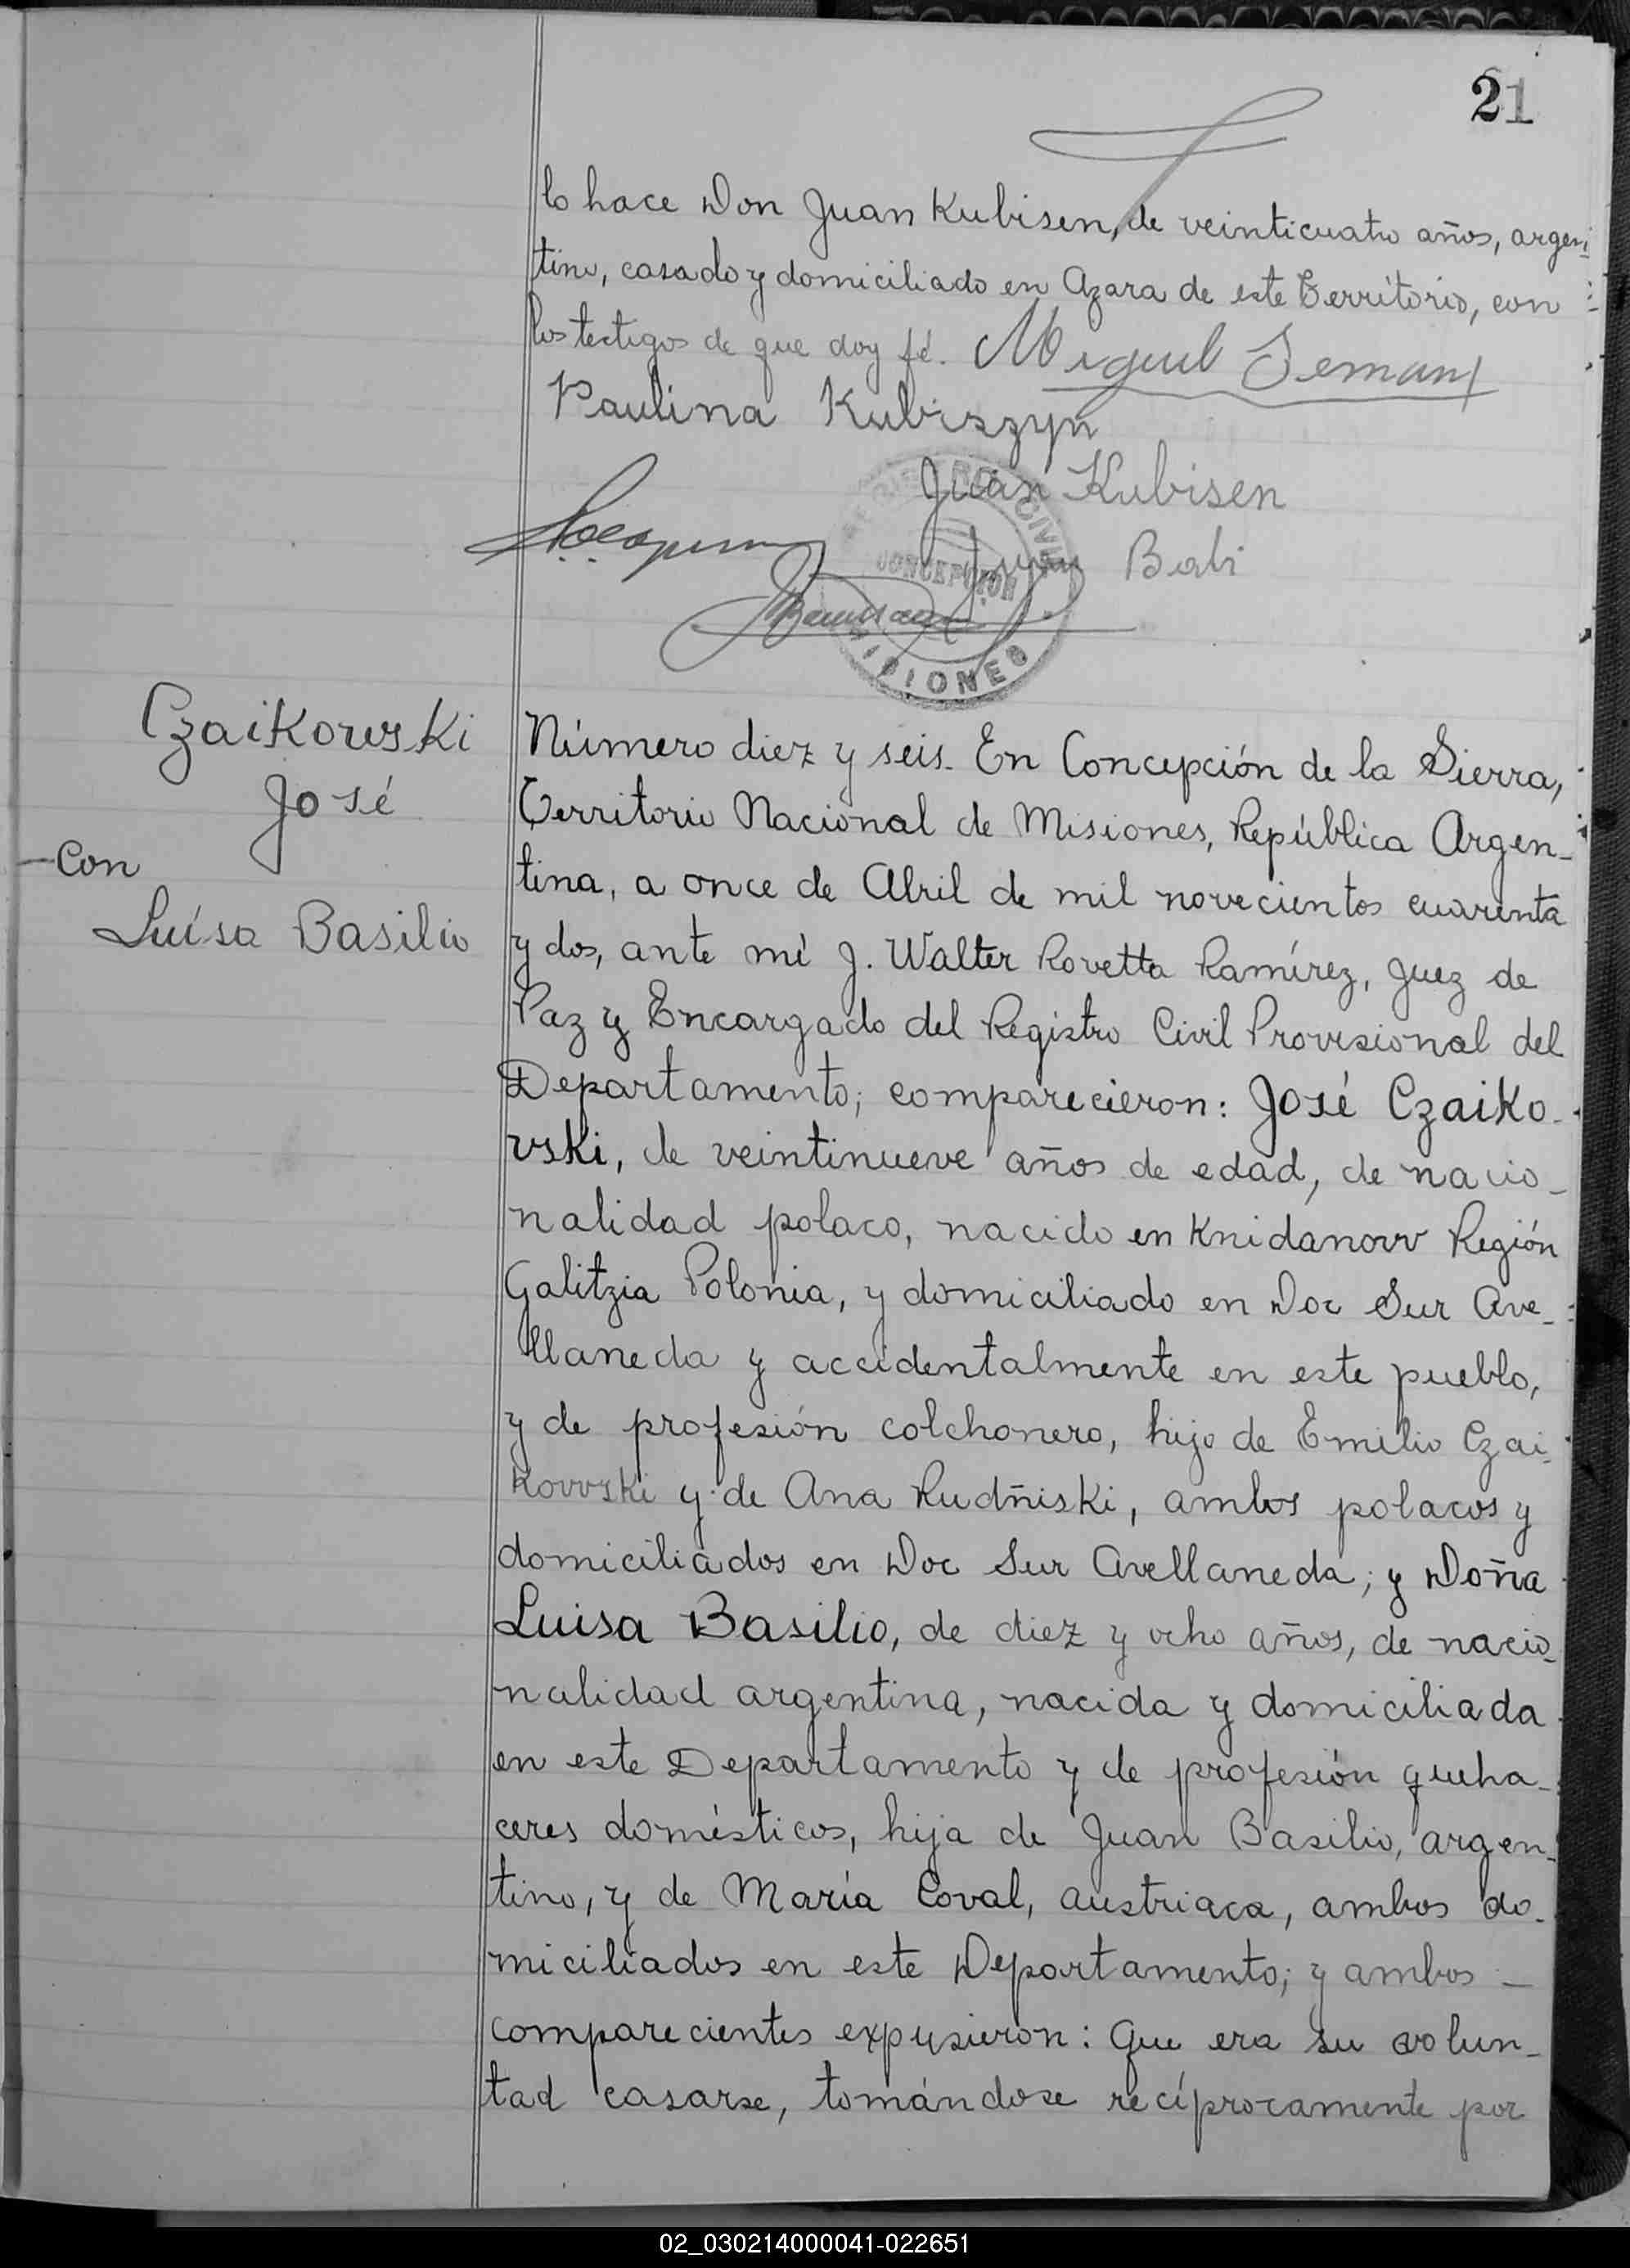 21
lo hace Don Juan Kubisen, de veinticuatro años, argen-
tino, casado y domiciliado en Azara de este Territorio, con
los testigos de que doy fé. Miguel
Paulina Kubiszyn
Juan Kubisen
Juan Babi
REGISTRO CIVIL
CONCEPCION
MISIONES
Czaikowski
José
-Con
Luísa Basilio
Número diez y seis. En Concepción de la Sierra,
Territorio Nacional de Misiones, República Argen-
tina, a once de Abril de mil novecientos cuarenta
y dos, ante mí J. Walter Rovetta Ramírez, Juez de
Paz y Encargado del Registro Civil Provisional del
Departamento; comparecieron: José Czaiko-
vski, de veintinueve años de edad, de nacio-
nalidad polaco, nacido en Knidanow Región
Galitzia Polonia, y domiciliado en Doc Sur Ave-
llaneda y accidentalmente en este pueblo,
y de profesión colchonero, hijo de Emilio Czai-
kowski y de Ana Rudñiski, ambos polacos y
domiciliados en Doc Sur Avellaneda; y Doña
Luisa Basilio, de diez y ocho años, de nacio-
nalidad argentina, nacida y domiciliada
en este Departamento y de profesión queha-
ceres domésticos, hija de Juan Basilio, argen-
tino, y de María Coval, austriaca, ambos do-
miciliados en este Departamento; y ambos -
comparecientes expusieron: Que era su volun-
tad casarse, tomándose recíprocamente por
02_030214000041-022651